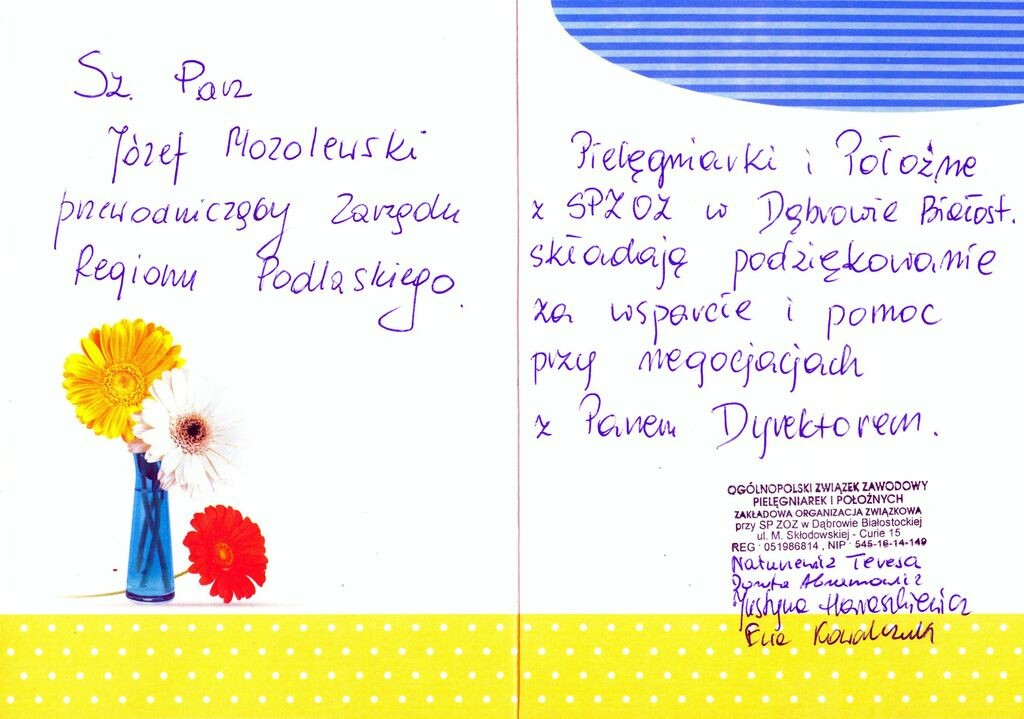 Sz. Pan
Józef Mozolewski
przewodniczący Zarządu
Regionu Podlaskiego.
Pielęgniarki i Położne
z SPZOZ w Dąbrowie Białost.
składają podziękowanie
za wsparcie i pomoc
przy negocjacjach
z Panem Dyrektorem.
OGÓLNOPOLSKI ZWIĄZEK ZAWODOWY
PIELĘGNIAREK I POŁOŻNYCH
ZAKŁADOWA ORGANIZACJA ZWIĄZKOWA
przy SP ZOZ w Dąbrowie Białostockiej
ul. M. Skłodowskiej - Curie 15
REG 051986814, NIP 545-16-14-149
Teresa
Danuta Abramowicz
Justyna Haraszkiewicz
Ewa Kowalczuk